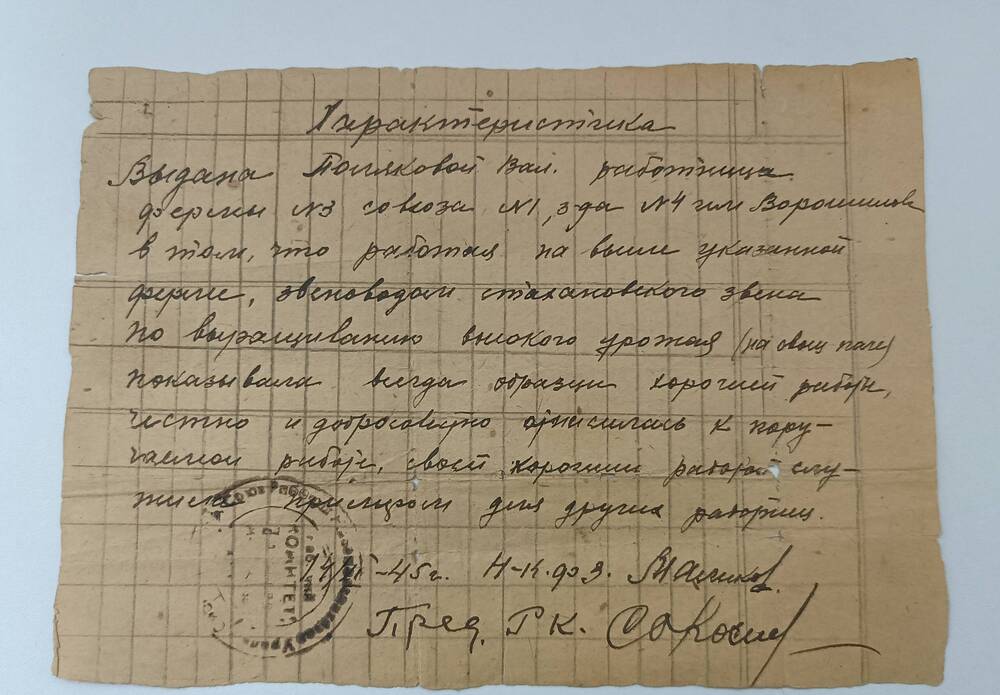 Характеристика
Выдана Поляковой Вал. работница
фермы №3 совхоза №1, з-да №4 им Ворошилова
в том, что работая на выше указанной
ферме, звеноводом стахановского звена
по выращиванию высокого урожая (на овощ поле)
показывала всегда образцы хорошей работе,
честно и добросовестно относилась к пору-
чаемой работе, своей хорошей работой слу-
жила примером для других работниц.
-45г. Н-к. ф 3.
Пред. РК.
КОМИТЕТ